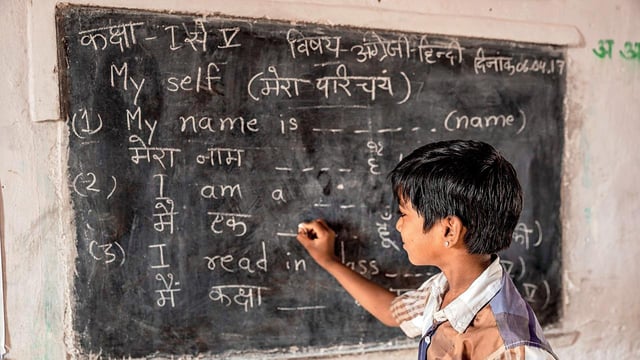 कक्षा - I से V विषय - अंग्रेजी - हिन्दी दिनांक 06.04.17
अ अ
My self (मेरा परिचय)
(1) My name is _ _ _ _ _ . (name)
मेरा नाम _ _ _ है
(2) I am a _ _ .
मैं एक _ _ हूँ
(3) I read in _ _ _
मैं कक्षा _ _ V)